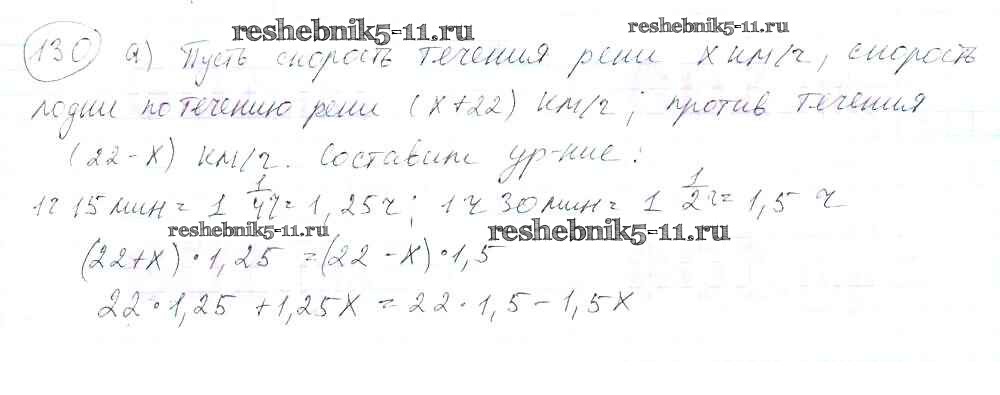 reshebnik5-11.ru reshebnik5-11.ru
130 а) Пусть скорость течения реки х км/ч, скорость
лодки по течению реки (х+22) км/ч; против течения
(22-х) км/ч. Составим ур-ние:
1ч 15 мин = 1 1/4 ч = 1,25 ч; 1ч 30 мин = 1 1/2 ч = 1,5 ч
reshebnik5-11.ru reshebnik5-11.ru
(22+х)·1,25 = (22-х)·1,5
22·1,25 + 1,25х = 22·1,5 - 1,5х